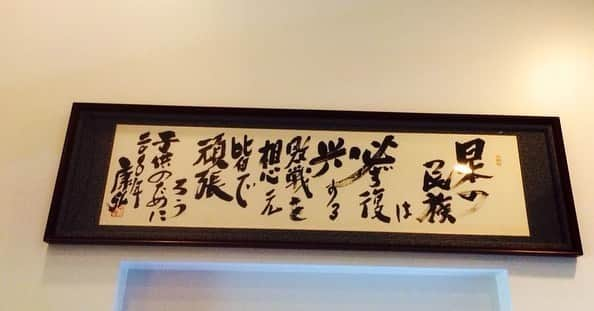 日本の
民族
は
必ず復
興する
敗戦を
想え
皆で
頑張
ろう
子供のために